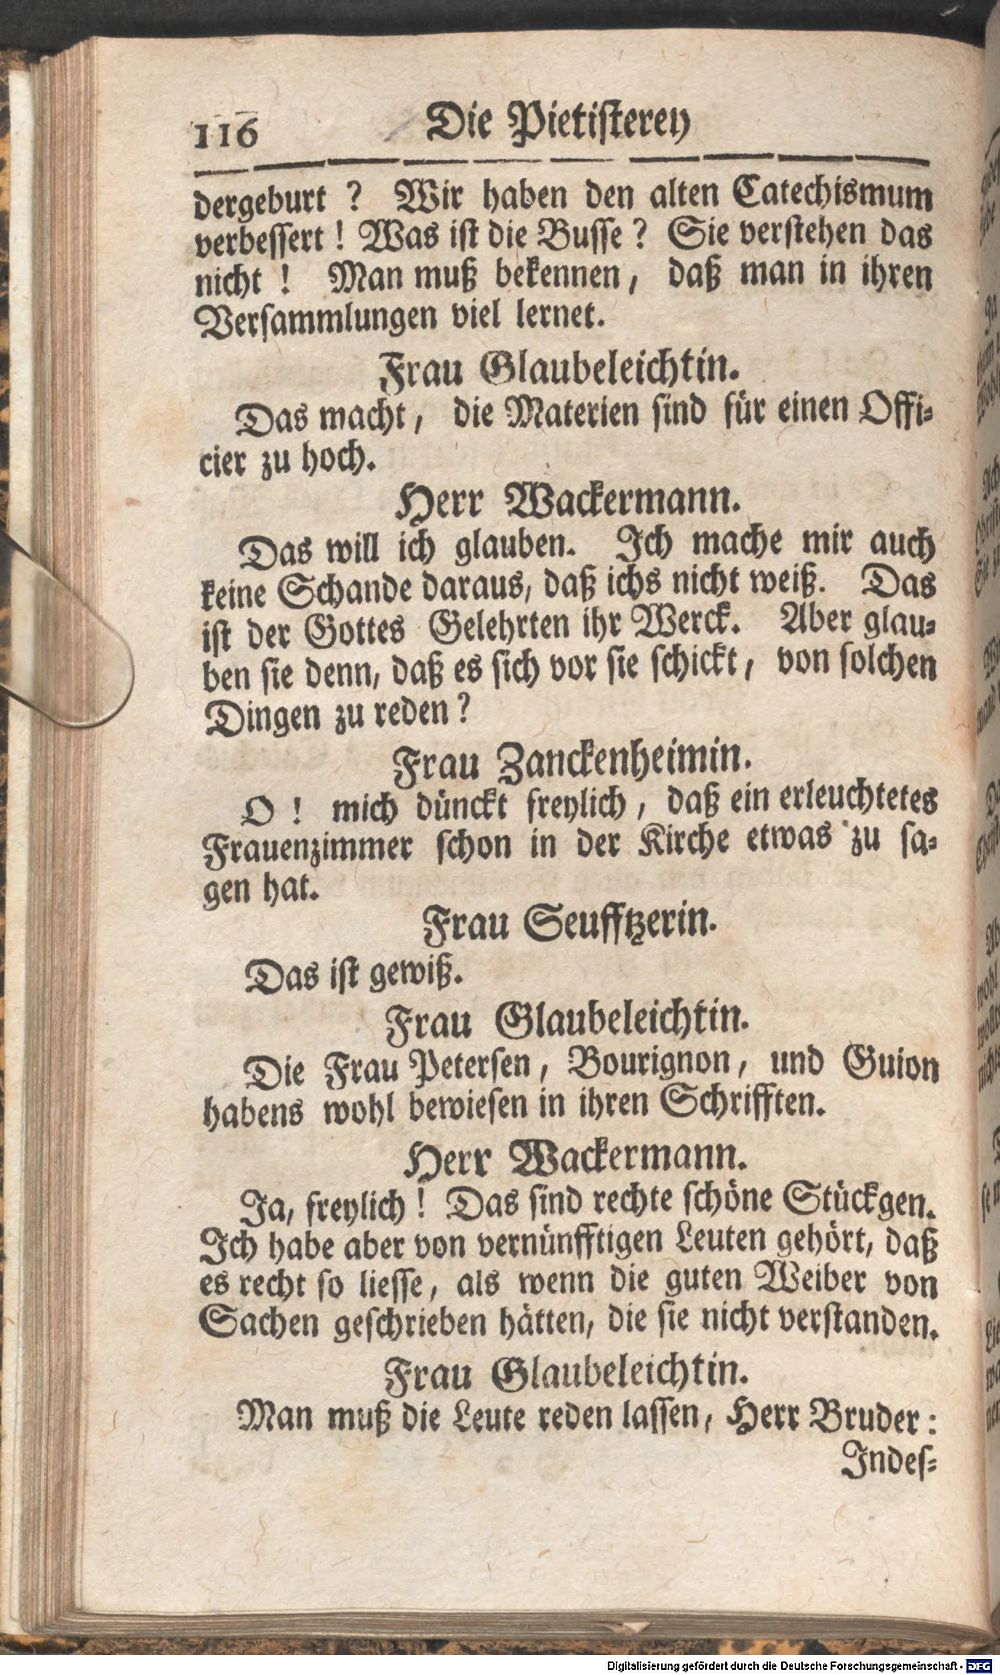 116 Die Pietisterey
dergeburt ? Wir haben den alten Catechismum
verbessert ! Was ist die Busse ? Sie verstehen das
nicht ! Man muß bekennen, daß man in ihren
Versammlungen viel lernet.
Frau Glaubeleichtin.
Das macht, die Materien sind für einen Offi-
cier zu hoch.
Herr Wackermann.
Das will ich glauben. Ich mache mir auch
keine Schande daraus, daß ichs nicht weiß. Das
ist der Gottes Gelehrten ihr Werck. Aber glau-
ben sie denn, daß es sich vor sie schickt, von solchen
Dingen zu reden ?
Frau Zanckenheimin.
O ! mich dünckt freylich, daß ein erleuchtetes
Frauenzimmer schon in der Kirche etwas zu sa-
gen hat.
Frau Seufftzerin.
Das ist gewiß.
Frau Glaubeleichtin.
Die Frau Petersen, Bourignon, und Guion
habens wohl bewiesen in ihren Schrifften.
Herr Wackermann.
Ja, freylich ! Das sind rechte schöne Stückgen.
Ich habe aber von vernünfftigen Leuten gehört, daß
es recht so liesse, als wenn die guten Weiber von
Sachen geschrieben hätten, die sie nicht verstanden.
Frau Glaubeleichtin.
Man muß die Leute reden lassen, Herr Bruder :
Indes-
Digitalisierung gefördert durch die Deutsche Forschungsgemeinschaft - DFG